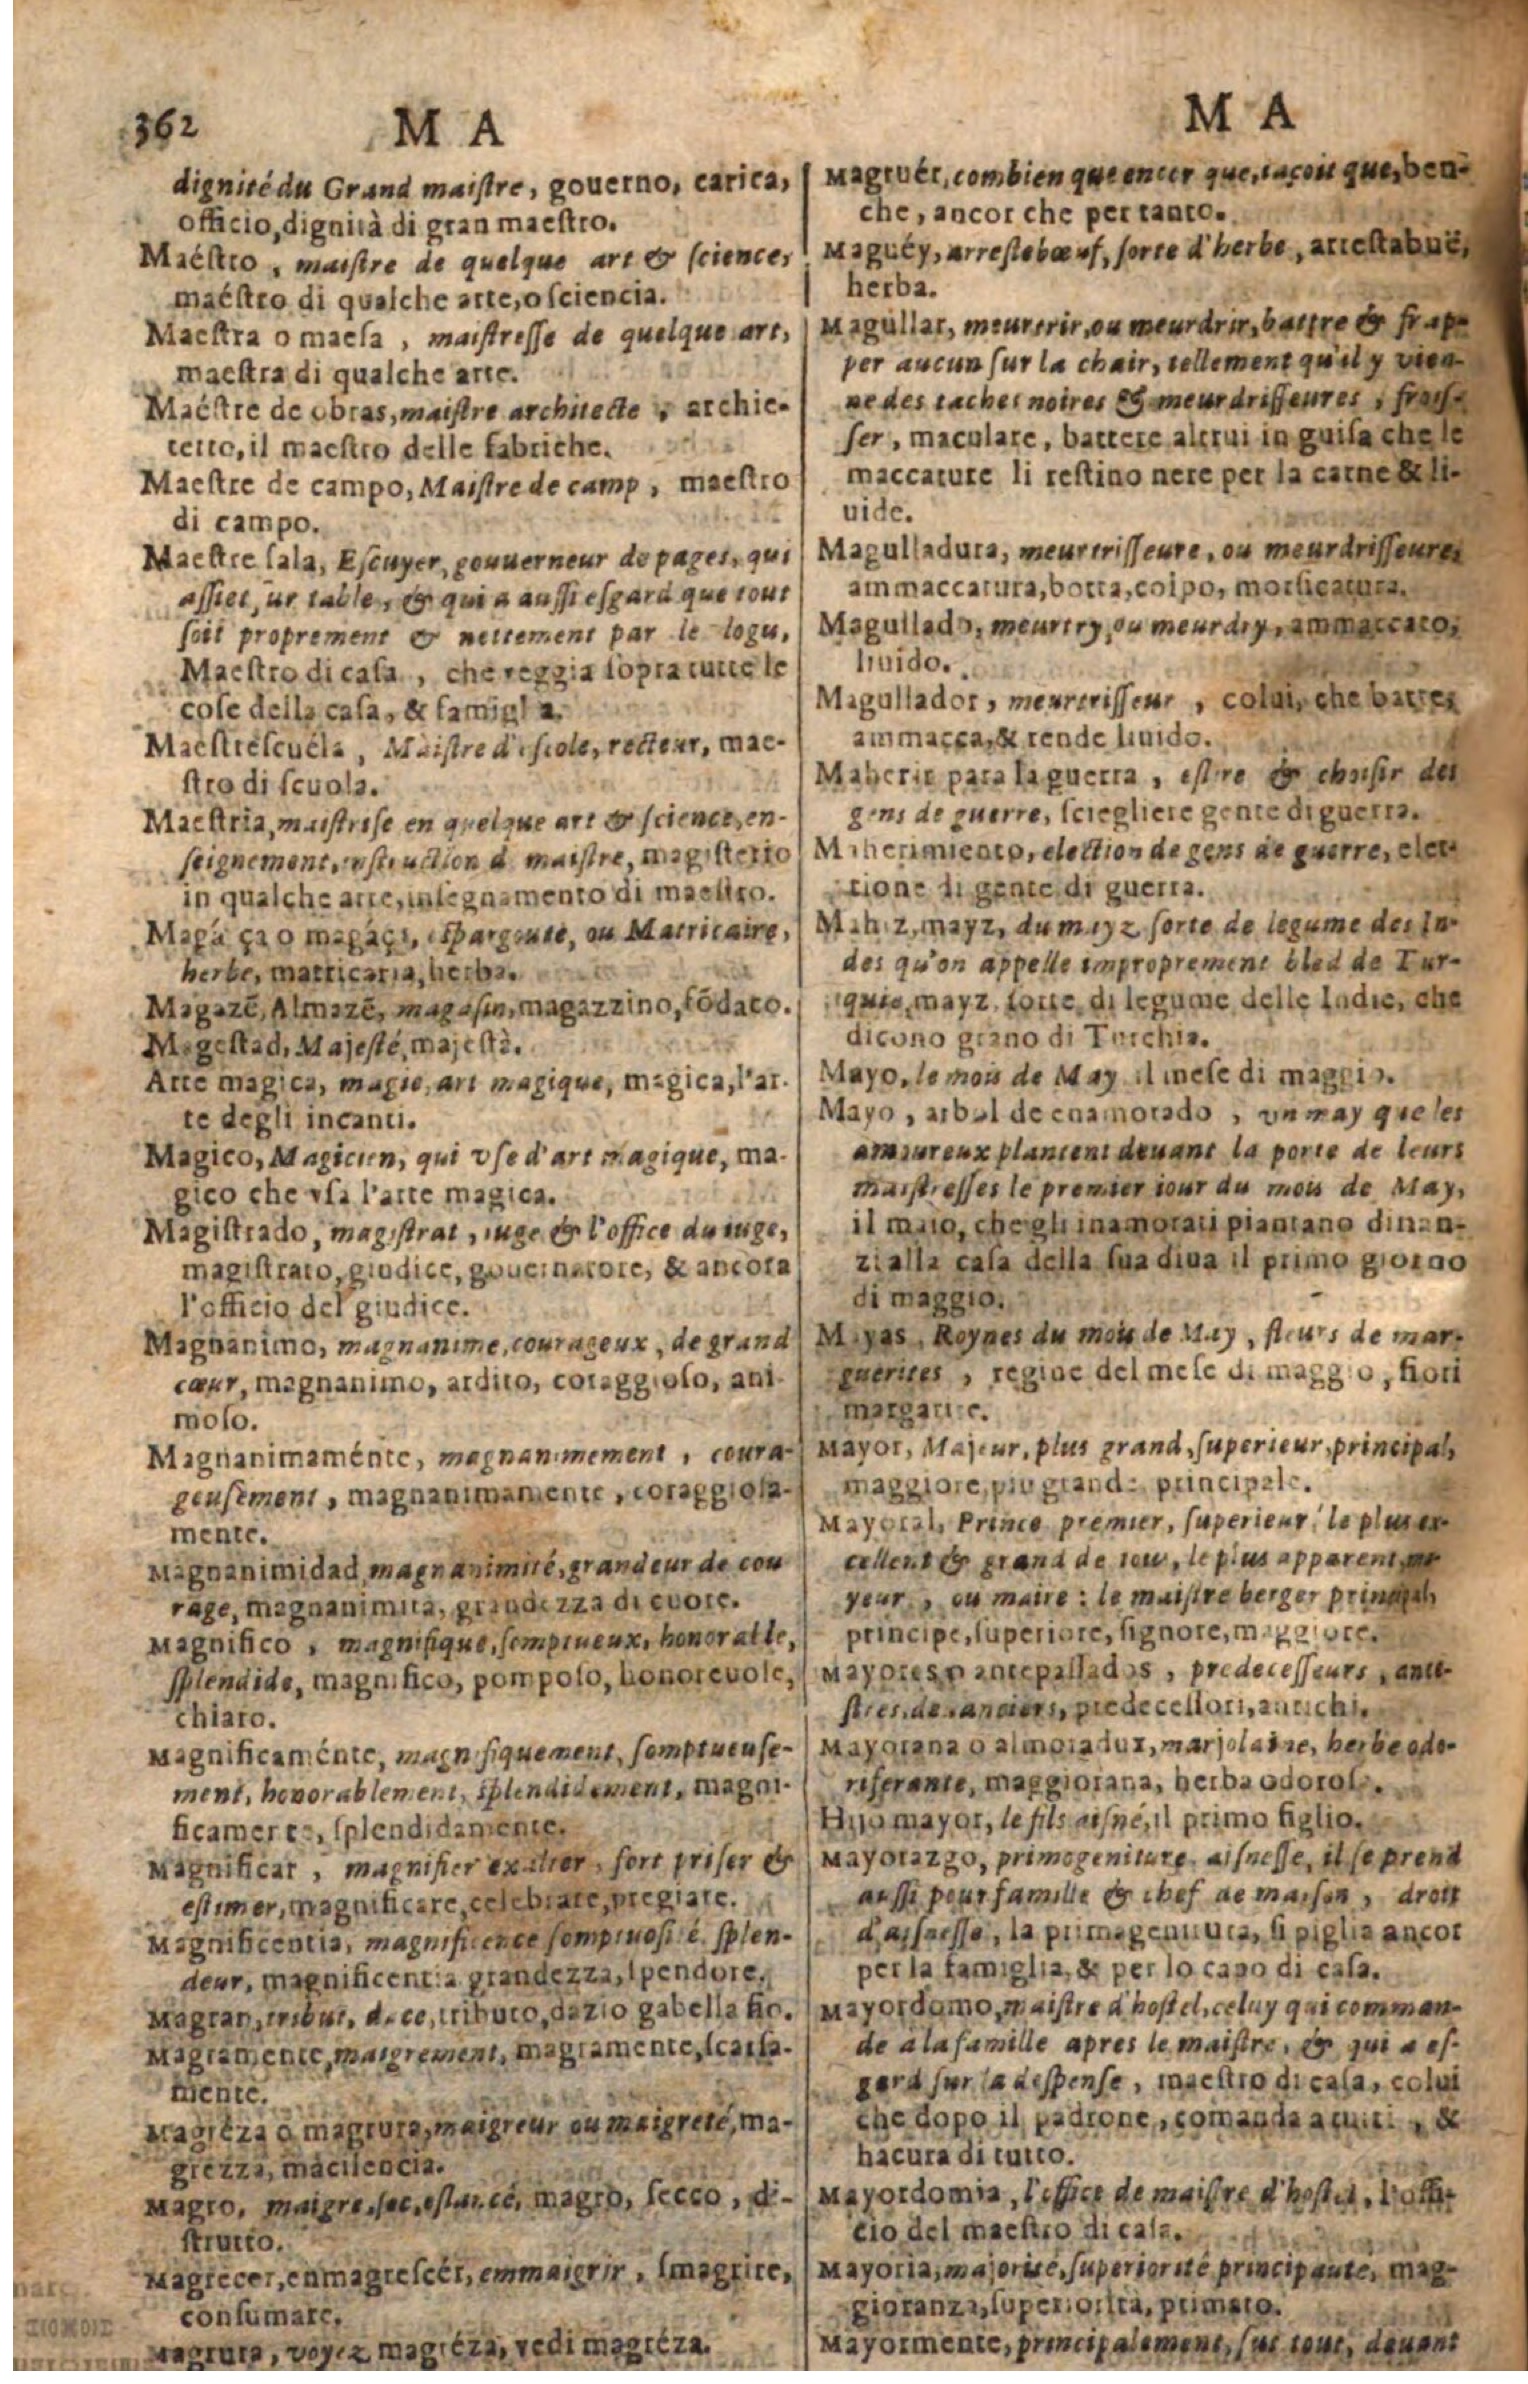 362 M A
dignité du Grand maiſtre, gouerno, carica,
officio, dignità di gran maeſtro.
Maéſtro, maiſtre de quelque art & ſcience,
maéſtro di qualche arte, o ſciencia.
Maeſtra o maeſa, maiſtreſſe de quelque art,
maeſtra di qualche arte.
Maéſtre de obras, maiſtre architecte, archie-
tetto, il maeſtro delle fabriche.
Maeſtre de campo, Maiſtre de camp, maeſtro
di campo.
Maeſtre ſala, Eſcuyer, gouuerneur de pages, qui
aſſiet ſur table, & qui a auſſi eſgard que tout
ſoit proprement & nettement par le logu,
Maeſtro di caſa, che reggia ſopra tutte le
coſe della caſa, & famiglia.
Maeſtreſcuéla, Maiſtre d'eſcole, recteur, mae-
ſtro di ſcuola.
Maeſtria, maiſtriſe en quelque art & ſcience, en-
ſeignement, inſtruction de maiſtre, magiſterio
in qualche arte, inſegnamento di maeſtro.
Magáça o magáça, eſpargoute, ou Matricaire,
herbe, matricaria, herba.
Magazẽ, Almazẽ, magaſin, magazzino, fõdaco.
Mageſtad, Majeſté, majeſtà.
Arte magica, magie, art magique, magica, l'ar-
te degli incanti.
Magico, Magicien, qui vſe d'art magique, ma-
gico che vſa l'arte magica.
Magiſtrado, magiſtrat, iuge & l'office du iuge,
magiſtrato, giudice, gouernatore, & ancora
l'officio del giudice.
Magnanimo, magnanime, courageux, de grand
cœur, magnanimo, ardito, coraggioſo, ani-
moſo.
Magnanimaménte, magnanimement, coura-
geuſement, magnanimamente, coraggioſa-
mente.
Magnanimidad, magnanimité, grandeur de cou
rage, magnanimità, grandezza di cuore.
Magnifico, magnifique, ſomptueux, honorable,
ſplendide, magnifico, pompoſo, honoreuole,
chiaro.
Magnificaménte, magnifiquement, ſomptueuſe-
ment, honorablement, ſplendidement, magni-
ficamente, ſplendidamente.
Magnificar, magnifier exalter, fort priſer &
eſtimer, magnificare, celebrare, pregiare.
Magnificentia, magnificence ſomptuoſité ſplen-
deur, magnificentia grandezza, ſpendore.
Magran, tribut, dace, tributo, dazio gabella fio.
Magramente, maigrement, magramente, ſcarſa-
mente.
Magréza o magrura, maigreur ou maigreté, ma-
grezza, macilencia.
Magro, maigre, ſec, eſtancé, magro, ſecco, di-
ſtrutto.
Magrecer, enmagreſcér, emmaigrir, ſmagrire,
conſumare.
Magrura, voyez magréza, vedi magréza.
M A
Magruér, combien que encor que, iaçoit que, ben-
che, ancor che per tanto.
Maguéy, arreſtebœuf, ſorte d'herbe, arreſtabuë,
herba.
Magullar, meurtrir, ou meurdrir, battre & frap-
per aucun ſur la chair, tellement qu'il y vien-
ne des taches noires & meurdriſſeures, froiſ-
ſer, maculare, battere altrui in guiſa che le
maccature li reſtino nere per la carne & li-
uide.
Magulladura, meurtriſſeure, ou meurdriſſeure,
ammaccatura, botta, colpo, morſicatura.
Magullado, meurtry, ou meurdry, ammaccato,
liuido.
Magullador, meurtriſſeur, colui, che batte,
ammacca, & rende liuido.
Maherir para la guerra, eſlire & choiſir des
gens de guerre, ſciegliere gente di guerra.
Maherimiento, election de gens de guerre, elet-
tione di gente di guerra.
Mahiz, mayz, du mayz ſorte de legume des In-
des qu'on appelle improprement bled de Tur-
quie, mayz, ſorte di legume delle Indie, che
dicono grano di Turchia.
Mayo, le mois de May il meſe di maggio.
Mayo, arbol de enamorado, vn may que les
amoureux plantent deuant la porte de leurs
maiſtreſſes le premier iour du mois de May,
il maio, che gli inamorati piantano dinan-
zi alla caſa della ſua diua il primo giorno
di maggio.
Mayas, Roynes du mois de May, fleurs de mar-
guerites, regine del meſe di maggio, fiori
margarite.
Mayor, Majeur, plus grand, ſuperieur, principal,
maggiore, piu grande principale.
Mayoral, Prince premier, ſuperieur, le plus ex-
cellent & grand de tous, le plus apparent, ma-
yeur, ou maire: le maiſtre berger principal,
principe, ſuperiore, ſignore, maggiore.
Mayores o antepaſſados, predeceſſeurs, ance-
ſtres, deuanciers, predeceſſori, antichi.
Mayorana o almoradux, marjolaine, herbe odo-
riferante, maggiorana, herba odoroſa.
Hijo mayor, le fils aiſné, il primo figlio.
Mayorazgo, primogeniture, aiſneſſe, il ſe prend
auſſi pour famille & chef de maiſon, droit
d'aiſneſſe, la primagenitura, ſi piglia ancor
per la famiglia, & per lo capo di caſa.
Mayordomo, maiſtre d'hoſtel, celuy qui comman-
de a la famille apres le maiſtre, & qui a eſ-
gard ſur la deſpenſe, maeſtro di caſa, colui
che dopo il padrone, comanda a tutti, &
ha cura di tutto.
Mayordomia, l'office de maiſtre d'hoſtel, l'offi-
cio del maeſtro di caſa.
Mayoria, majorité, ſuperiorité principauté, mag-
gioranza, ſuperiorità, primato.
Mayormente, principalement, ſur tout, deuant